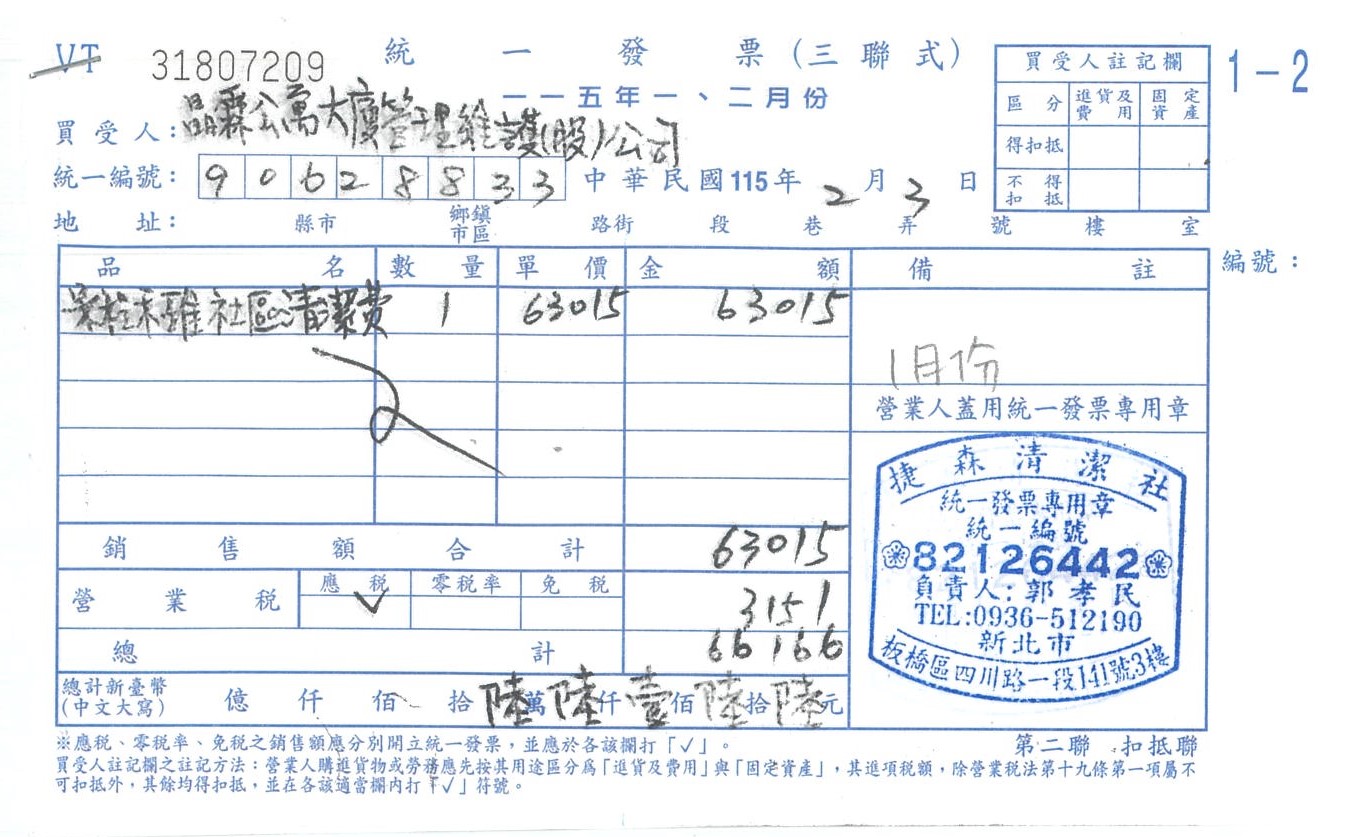 VT 31807209 統一發票(三聯式)
一一五年一、二月份
1-2
買受人註記欄
區分 進貨及費用 固定資產
得扣抵
不得扣抵
買受人:品霖公寓大廈管理維護(股)公司
統一編號:90628833 中華民國115年2月3日
地址: 縣市 鄉鎮市區 路街 段 巷 弄 號 樓 室
品名 數量 單價 金額 備註 編號:
禾雅社區清潔費 1 63015 63015
1月份
營業人蓋用統一發票專用章
捷森清潔社
統一發票專用章
統一編號
82126442
負責人:郭孝民
TEL:0936-512190
新北市
板橋區四川路一段141號3樓
銷售額合計 63015
營業稅 應稅 ✓ 零稅率 免稅 3151
總計 66166
總計新臺幣(中文大寫) 億 仟 佰 拾 陸萬陸仟壹佰陸拾陸元
※應稅、零稅率、免稅之銷售額應分別開立統一發票,並應於各該欄打「✓」。
第二聯 扣抵聯
買受人註記欄之註記方法:營業人購進貨物或勞務應先按其用途區分為「進貨及費用」與「固定資產」,其進項稅額,除營業稅法第十九條第一項屬不
可扣抵外,其餘均得扣抵,並在各該適當欄內打「✓」符號。